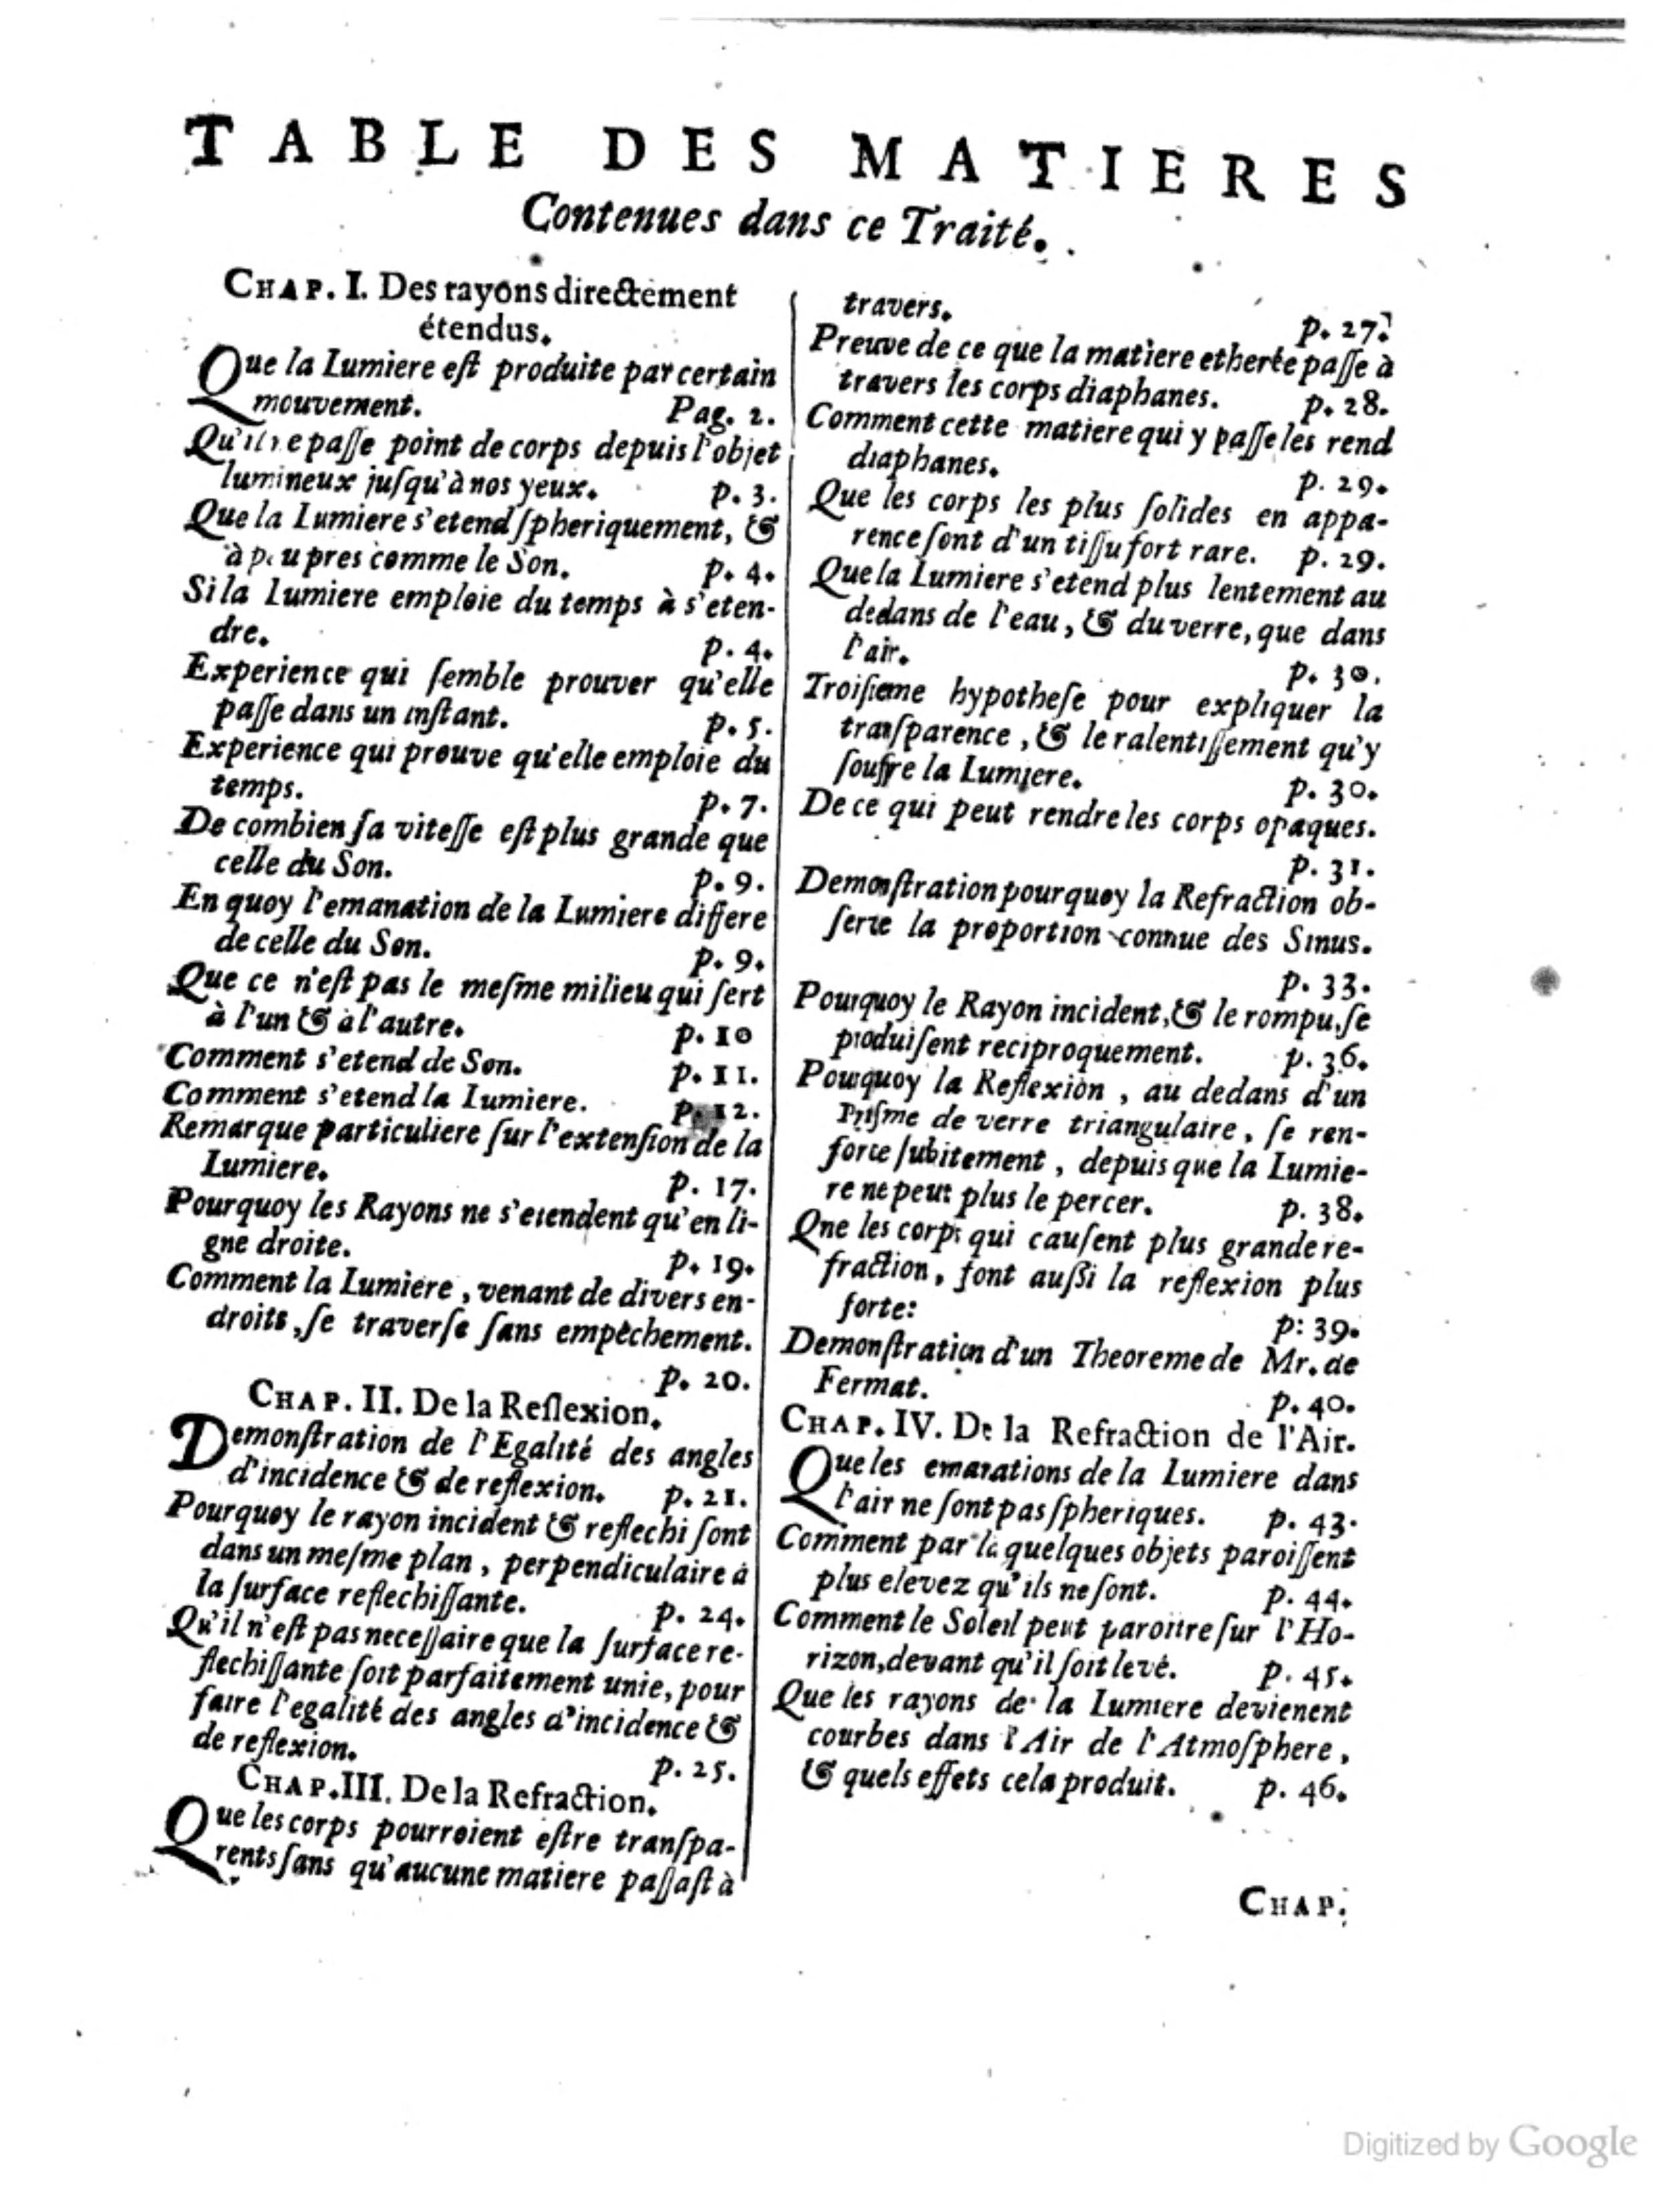 TABLE DES MATIERES
Contenues dans ce Traité.
CHAP. I. Des rayons directement
étendus.
Que la Lumiere est produite par certain
mouvement. Pag. 2.
Qu'il ne passe point de corps depuis l'objet
lumineux jusqu'à nos yeux. p. 3.
Que la Lumiere s'etend spheriquement, &
à peu pres comme le Son. p. 4.
Si la Lumiere emploie du temps à s'eten-
dre. p. 4.
Experience qui semble prouver qu'elle
passe dans un instant. p. 5.
Experience qui preuve qu'elle emploie du
temps. p. 7.
De combien sa vitesse est plus grande que
celle du Son. p. 9.
En quoy l'emanation de la Lumiere differe
de celle du Son. p. 9.
Que ce n'est pas le mesme milieu qui sert
à l'un & à l'autre. p. 10
Comment s'etend de Son. p. 11.
Comment s'etend la Lumiere. p. 12.
Remarque particuliere sur l'extension de la
Lumiere. p. 17.
Pourquoy les Rayons ne s'etendent qu'en li-
gne droite. p. 19.
Comment la Lumiere, venant de divers en-
droits, se traverse sans empêchement.
p. 20.
CHAP. II. De la Reflexion.
Demonstration de l'Egalité des angles
d'incidence & de reflexion. p. 21.
Pourquoy le rayon incident & reflechi sont
dans un mesme plan, perpendiculaire à
la surface reflechissante. p. 24.
Qu'il n'est pas necessaire que la surface re-
flechissante soit parfaitement unie, pour
faire l'egalité des angles d'incidence &
de reflexion. p. 25.
CHAP. III. De la Refraction.
Que les corps pourroient estre transpa-
rents sans qu'aucune matiere passast à
travers. p. 27.
Preuve de ce que la matiere etherée passe à
travers les corps diaphanes. p. 28.
Comment cette matiere qui y passe les rend
diaphanes. p. 29.
Que les corps les plus solides en appa-
rence sont d'un tissu fort rare. p. 29.
Que la Lumiere s'etend plus lentement au
dedans de l'eau, & du verre, que dans
l'air. p. 30.
Troisieme hypothese pour expliquer la
transparence, & le ralentissement qu'y
souffre la Lumiere. p. 30.
De ce qui peut rendre les corps opaques.
p. 31.
Demonstration pourquoy la Refraction ob-
serve la proportion connue des Sinus.
p. 33.
Pourquoy le Rayon incident, & le rompu, se
produisent reciproquement. p. 36.
Pourquoy la Reflexion, au dedans d'un
Prisme de verre triangulaire, se ren-
force subitement, depuis que la Lumie-
re ne peut plus le percer. p. 38.
Qne les corps qui causent plus grande re-
fraction, font aussi la reflexion plus
forte: p: 39.
Demonstration d'un Theoreme de Mr. de
Fermat. p. 40.
CHAP. IV. De la Refraction de l'Air.
Que les emanations de la Lumiere dans
l'air ne sont pas spheriques. p. 43.
Comment par là quelques objets paroissent
plus elevez qu'ils ne sont. p. 44.
Comment le Soleil peut paroitre sur l'Ho-
rizon, devant qu'il soit levé. p. 45.
Que les rayons de la Lumiere devienent
courbes dans l'Air de l'Atmosphere,
& quels effets cela produit. p. 46.
CHAP.
Digitized by Google